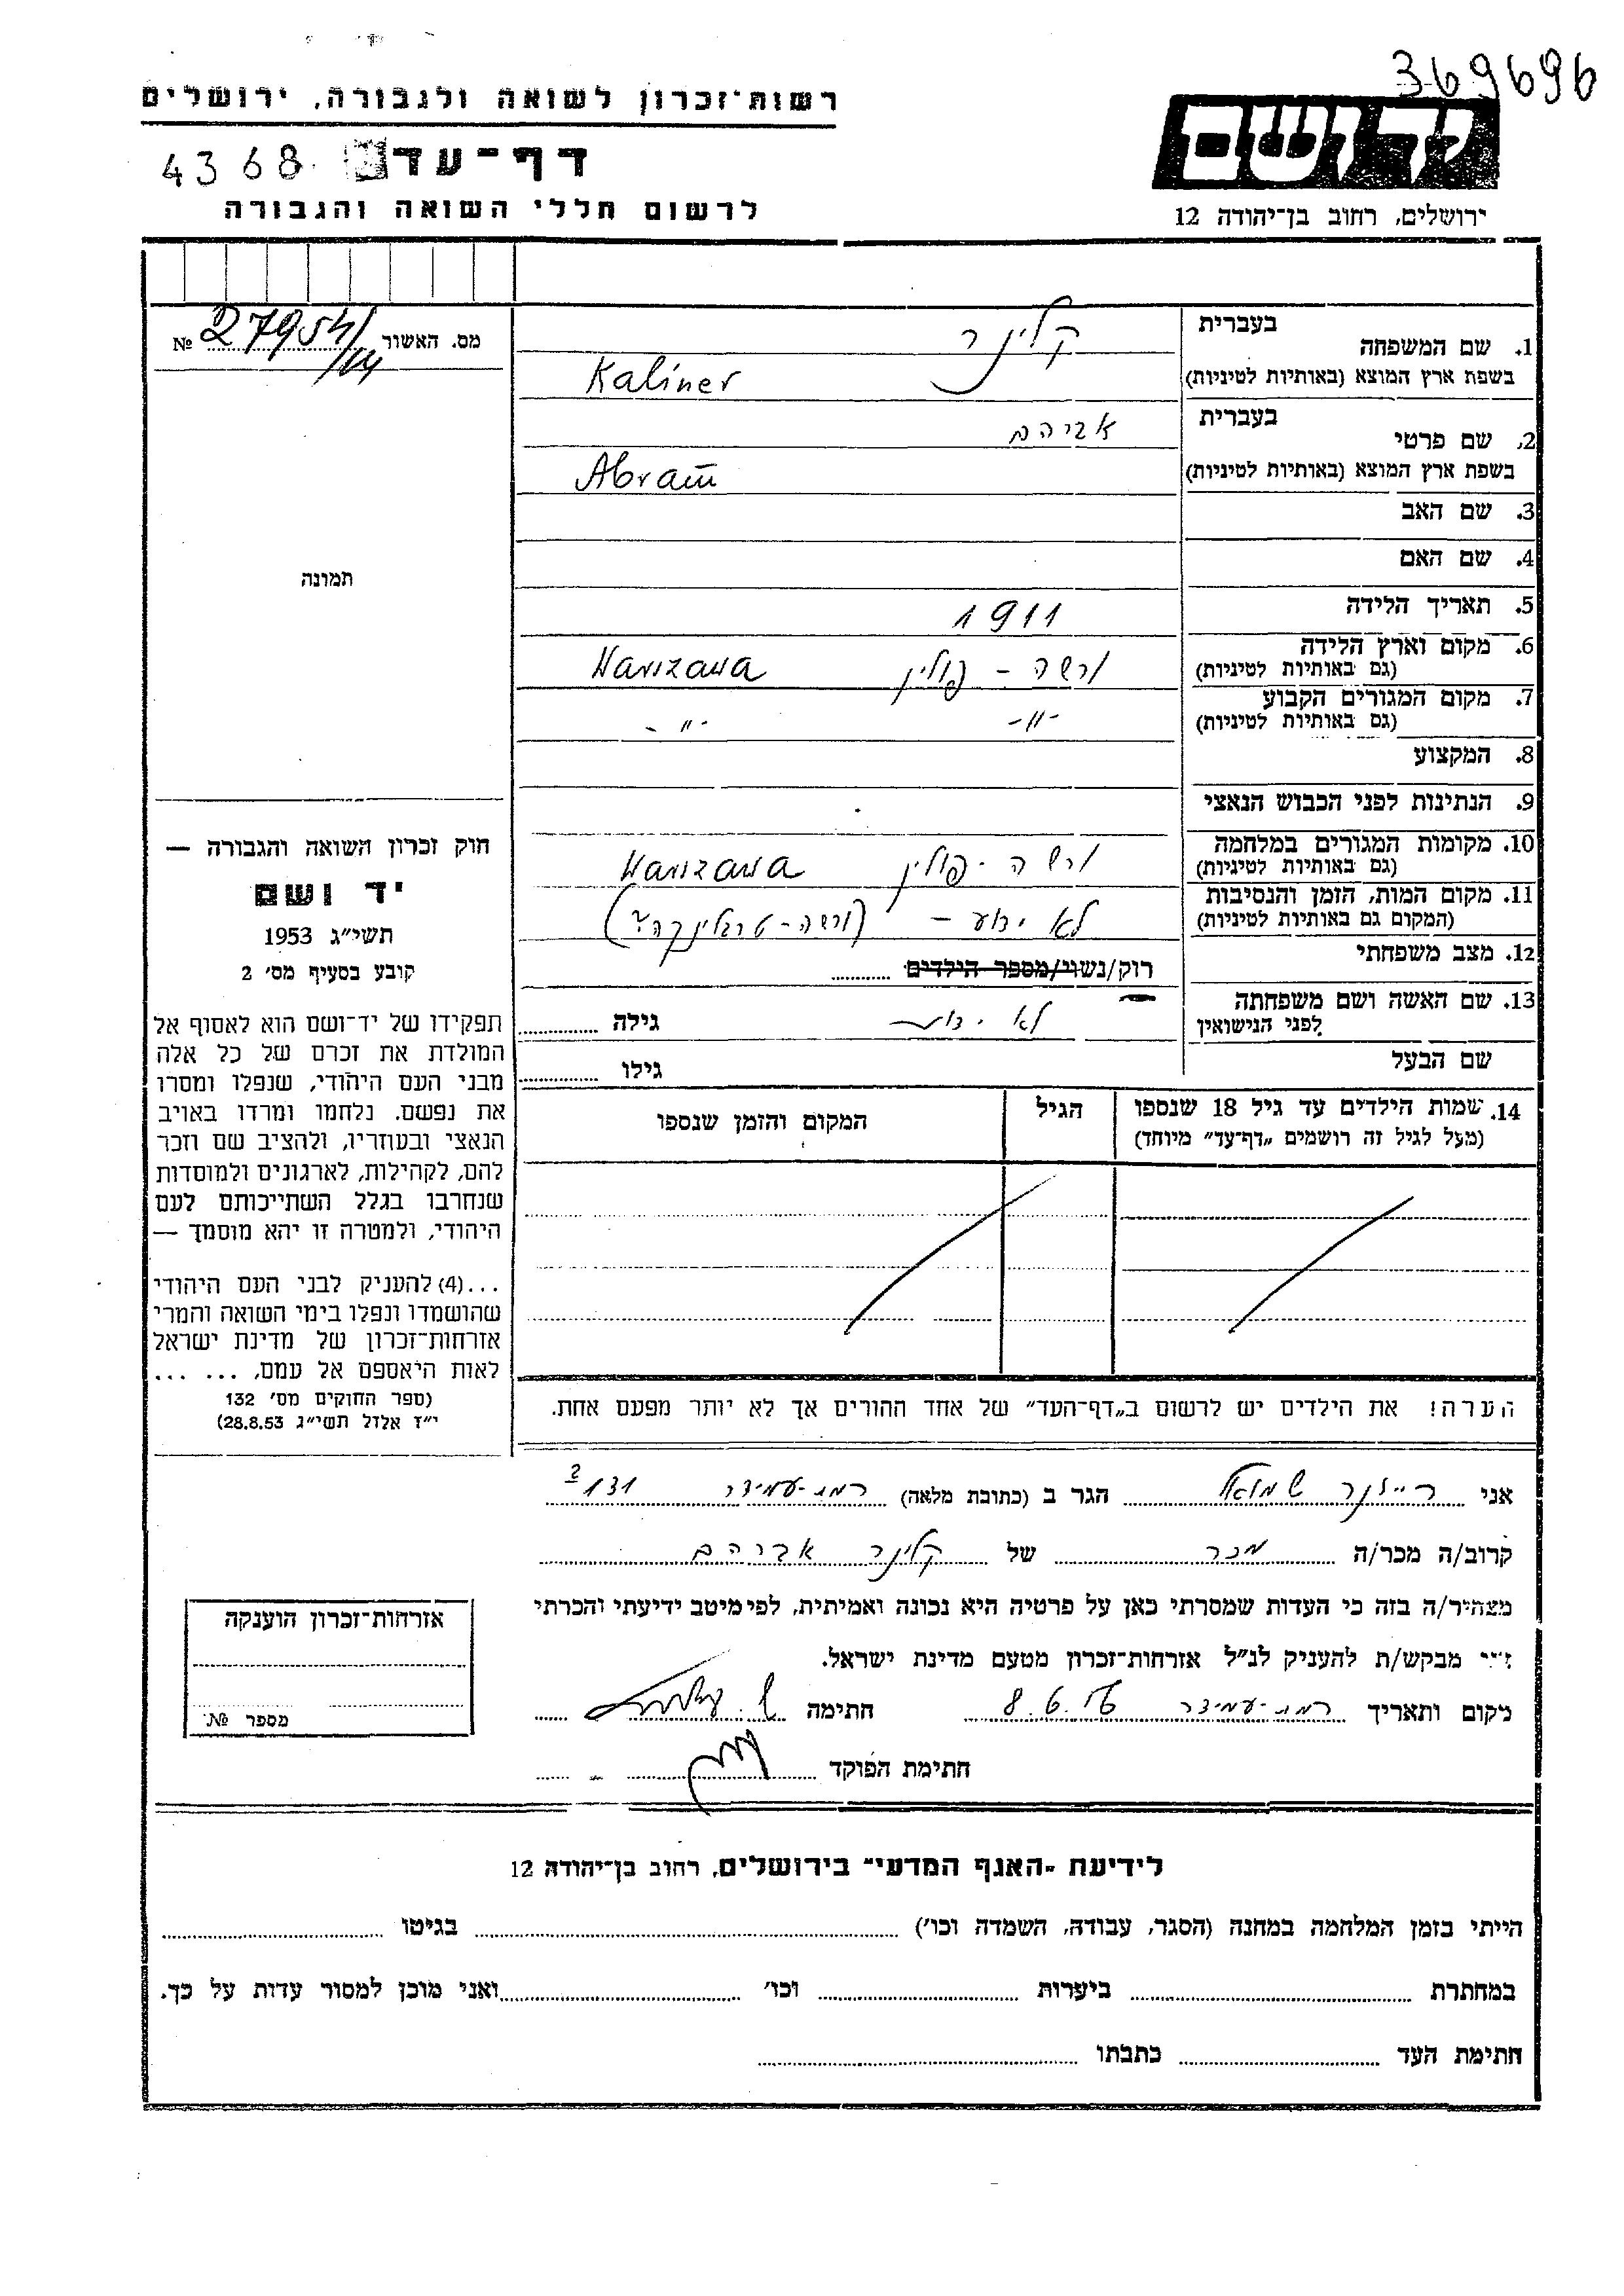 369696
רשות־זכרון לשואה ולגבורה, ירושלים
יד ושם
דף־עד
4368
לרשום חללי השואה והגבורה
ירושלים, רחוב בן־יהודה 12
מס. האשור № 27954/
1. שם המשפחה
בעברית
קלינר
בשפת ארץ המוצא (באותיות לטיניות)
Kaliner
2. שם פרטי
בעברית
אברהם
בשפת ארץ המוצא (באותיות לטיניות)
Abram
3. שם האב
4. שם האם
תמונה
5. תאריך הלידה
1911
6. מקום וארץ הלידה
(גם באותיות לטיניות)
ורשה - פולין Warszawa
7. מקום המגורים הקבוע
(גם באותיות לטיניות)
-"- -"-
8. המקצוע
9. הנתינות לפני הכבוש הנאצי
10. מקומות המגורים במלחמה
(גם באותיות לטיניות)
ורשה - פולין Warszawa
11. מקום המות, הזמן והנסיבות
(המקום גם באותיות לטיניות)
לא ידוע - (ורשה - טרבלינקה?)
12. מצב משפחתי
רוק/נשוי/מספר הילדים
13. שם האשה ושם משפחתה
לפני הנישואין
לא ידוע
גילה
שם הבעל
גילו
חוק זכרון השואה והגבורה —
יד ושם
תשי״ג 1953
קובע בסעיף מס׳ 2
תפקידו של יד־ושם הוא לאסוף אל
המולדת את זכרם של כל אלה
מבני העם היהודי, שנפלו ומסרו
את נפשם, נלחמו ומרדו באויב
הנאצי ובעוזריו, ולהציב שם וזכר
להם, לקהילות, לארגונים ולמוסדות
שנחרבו בגלל השתייכותם לעם
היהודי, ולמטרה זו יהא מוסמך —
...(4) להעניק לבני העם היהודי
שהושמדו ונפלו בימי השואה והמרי
אזרחות־זכרון של מדינת ישראל
לאות היאספם אל עמם, ... ...
(ספר החוקים מס׳ 132
י״ז אלול תשי״ג 28.8.53)
14. שמות הילדים עד גיל 18 שנספו
(מעל לגיל זה רושמים „דף־עד״ מיוחד)
הגיל
המקום והזמן שנספו
הערה! את הילדים יש לרשום ב„דף־העד״ של אחד ההורים אך לא יותר מפעם אחת.
אני שמואל הגר ב (כתובת מלאה) רמת-עמידר 131
קרוב/ה מכר/ה מכר של קלינר אברהם
מצהיר/ה בזה כי העדות שמסרתי כאן על פרטיה היא נכונה ואמיתית, לפי מיטב ידיעתי והכרתי
מבקש/ת להעניק לנ״ל אזרחות־זכרון מטעם מדינת ישראל.
מקום ותאריך רמת-עמידר 8.6. חתימה
חתימת הפוקד
אזרחות־זכרון הוענקה
מספר №
לידיעת „האגף המדעי״ בירושלים, רחוב בן־יהודה 12
הייתי בזמן המלחמה במחנה (הסגר, עבודה, השמדה וכו׳) בגיטו
במחתרת ביערות וכו׳ ואני מוכן למסור עדות על כך.
חתימת העד כתבתו